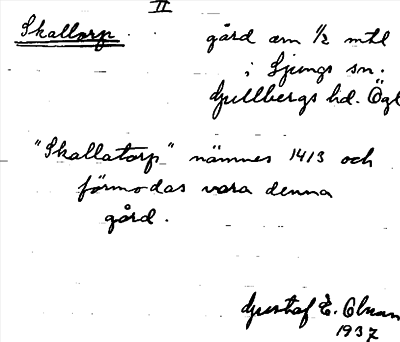 II
Skallorp. gård om 1/2 mtl
i Ljungs sn.
Gullbergs hd. Ögl
"Skallatorp" nämnes 1413 och
förmodas vara denna
gård.
Gustaf E.
1937